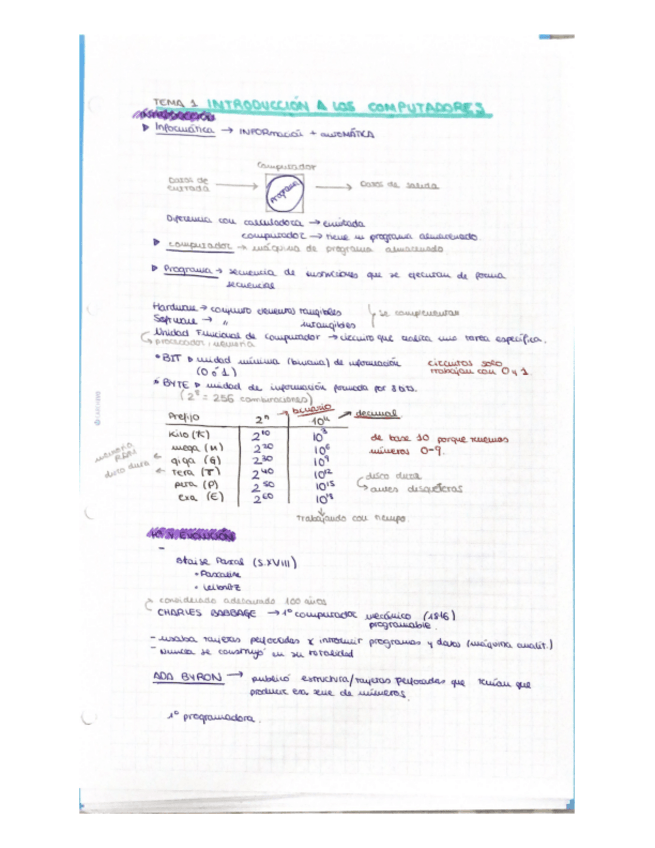 TEMA 1 INTRODUCCIÓN A LOS COMPUTADORES
INTRODUCCIÓN
Informática → INFORmación + autoMÁTICA
Computador
Datos de entrada → Programa → Datos de salida
Diferencia con calculadora → limitada
computador → tiene un programa almacenado
computador → máquina de programa almacenado
Programa → secuencia de instrucciones que se ejecutan de forma
secuencial
Hardware → conjunto elementos tangibles
Software → " intangibles
se complementan
Unidad Funcional de computador → circuito que realiza una tarea específica.
procesador, memoria
• BIT unidad mínima (binaria) de información
(0 ó 1)
circuitos solo
trabajan con 0 y 1
• BYTE unidad de información formada por 8 bits.
(2⁸ = 256 combinaciones)
→ binario
→ decimal
Prefijo 2ⁿ 10ⁿ
Kilo (K) 2¹⁰ 10³
mega (M) 2²⁰ 10⁶
giga (G) 2³⁰ 10⁹
tera (T) 2⁴⁰ 10¹²
peta (P) 2⁵⁰ 10¹⁵
exa (E) 2⁶⁰ 10¹⁸
memoria
RAM
disco duro
de base 10 porque tenemos
números 0-9.
disco duro
→ antes disqueteras
Trabajando con tiempo
Hª Y EVOLUCIÓN
-
Blaise Pascal (S.XVIII)
• Pascaline
• Leibnitz
considerado adelantado 100 años
CHARLES BABBAGE → 1º computador mecánico (1816)
programable.
- usaba tarjetas perforadas x introducir programas y datos (máquina analít.)
- Nunca se construyó en su totalidad
ADA BYRON → publicó estructura/tarjetas perforadas que tenían que
producir esa serie de números.
1º programadora.